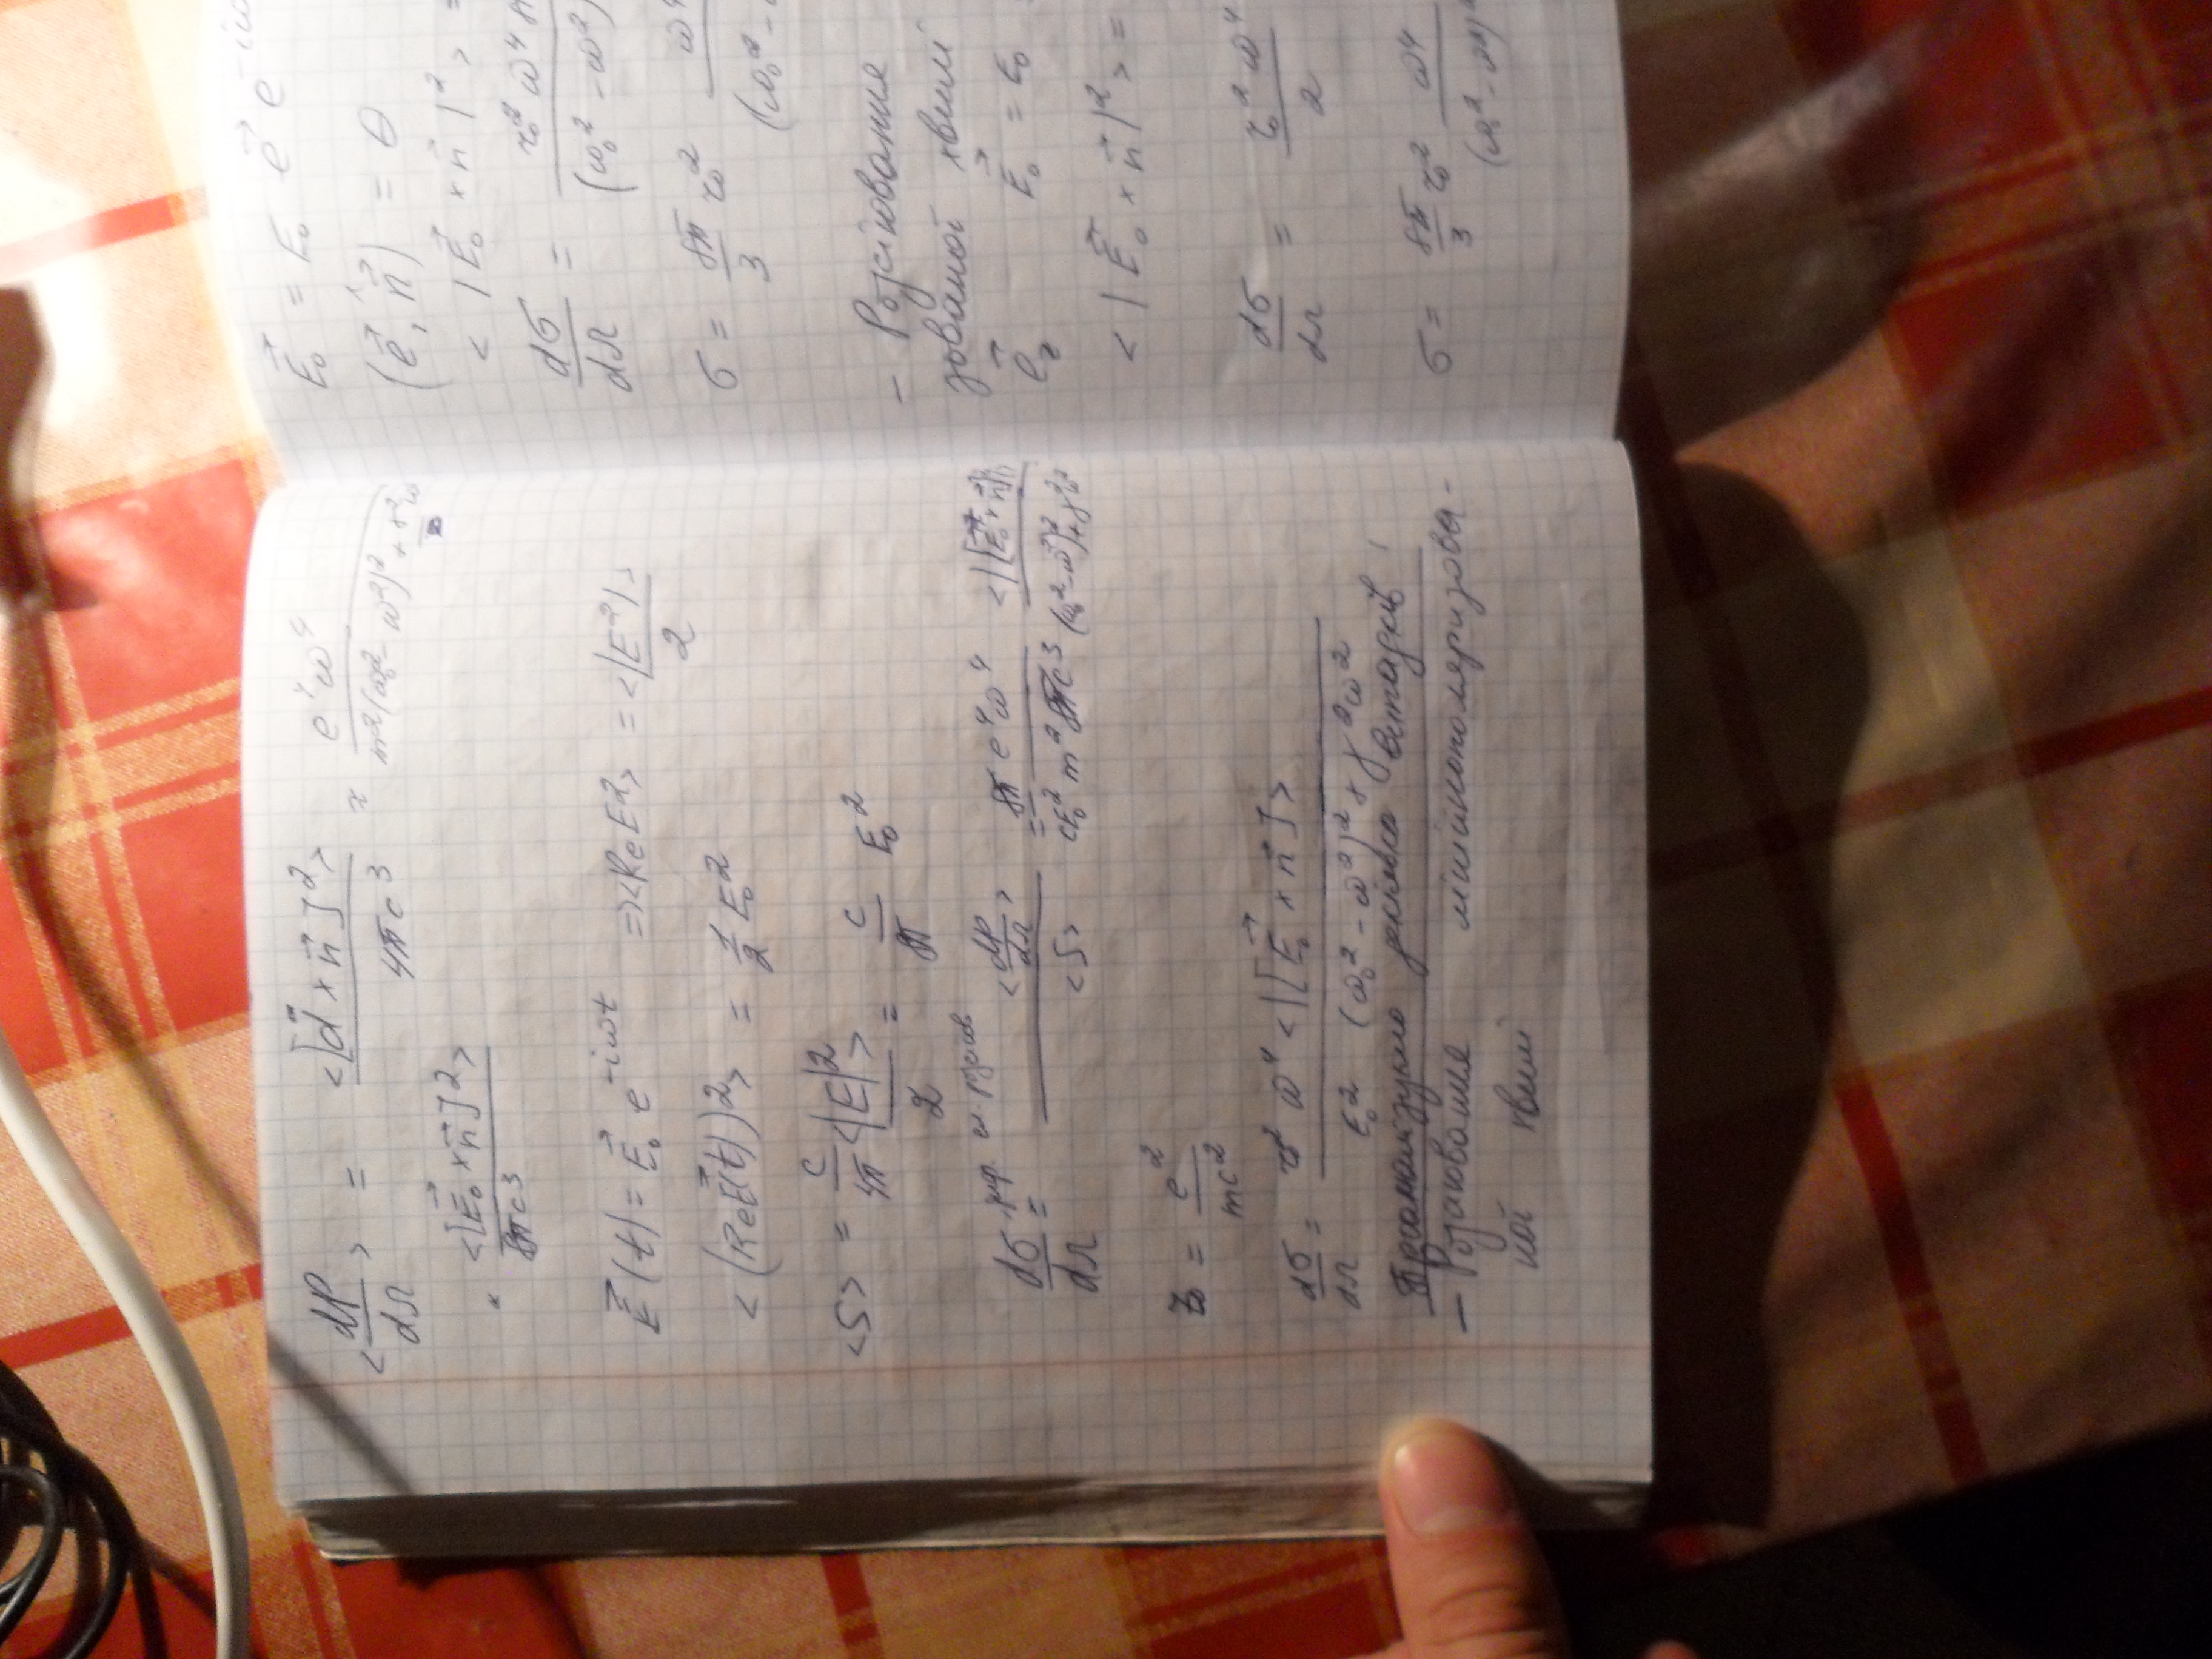 <dP/dΩ> = <[d̈⃗ × n⃗]²> / 4πc³ = e⁴ω⁴ / m²(ω₀² - ω²)² + γ²ω
× <[E⃗₀ × n⃗]²> / 8πc³
E⃗(t) = E⃗₀ e^(-iωt) => <Re E²> = <|E²|> / 2
<(Re E⃗(t))²> = 1/2 E₀²
<S> = c/4π <|E|²> / 2 = c/8π E₀²
dσ/dΩ = <dP/dΩ> / <S> = 8π/cE₀² e⁴ω⁴ / m² 8πc³ <|[E⃗₀ × n⃗]| / (ω₀² - ω²)² + γ²ω²
r₀ = e² / mc²
dσ/dΩ = r₀² ω⁴ <|[E⃗₀ × n⃗]> / E₀² (ω₀² - ω²)² + γ²ω²
Проаналізуємо декілька випадків:
- Розсіювання лінійнополяризова-
ної хвилі
E⃗₀ = E₀ e⃗ e^(-iω
(e⃗, n⃗) = θ
<|E⃗₀ × n⃗|²> =
dσ/dΩ = r₀² ω⁴ / (ω₀² - ω²)
σ = 8π/3 r₀² ω⁴ / (ω₀² -
- Розсіювання
зованої хвилі
E⃗₀ = E₀
e⃗₂
<|E⃗₀ × n⃗|²> =
dσ/dΩ = r₀² ω⁴ / 2
σ = 8π/3 r₀² ω⁴ / (ω₀² - ω²)